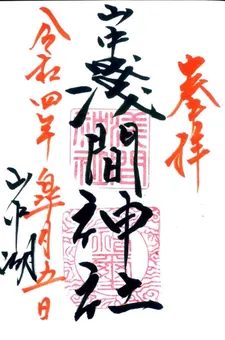 奉拝
山中
淺間神社
山中湖
令和四年皐月五日